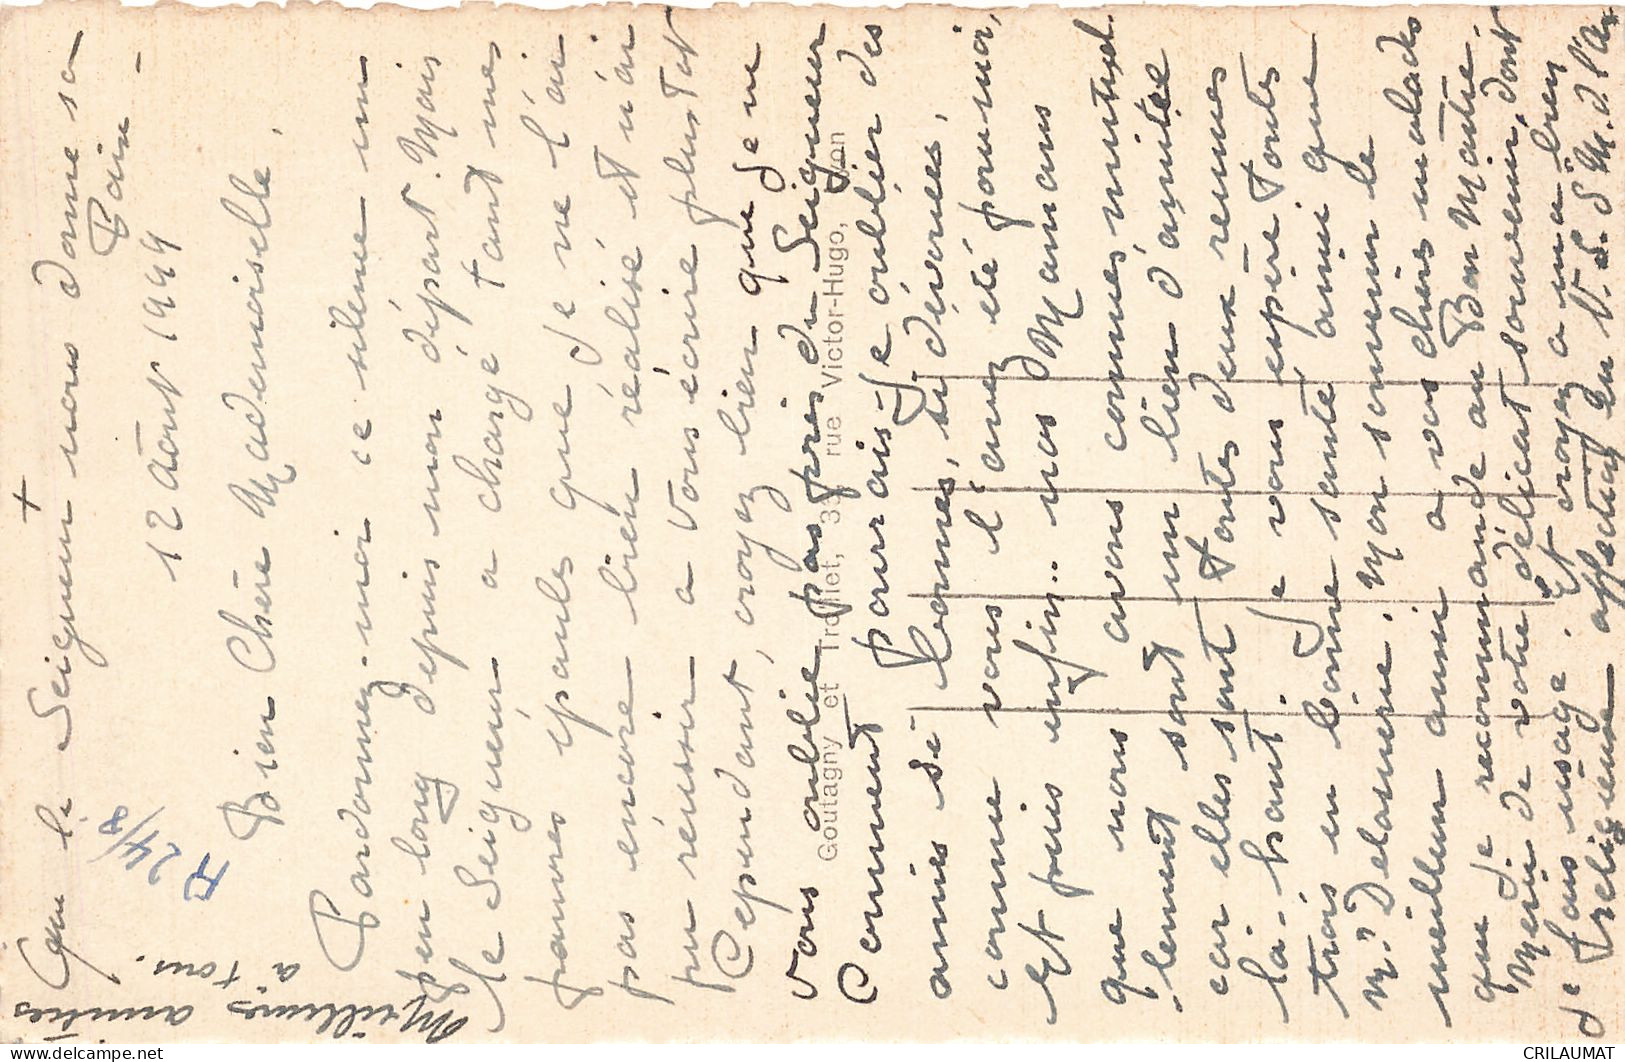 +
Que le Seigneur nous donne sa
Paix -
12 Août 1949
R 24/8
Bien Chère Mademoiselle,
Pardonnez-moi ce silence un
peu long depuis mon départ. Mais
le Seigneur a chargé tant mes
pauvres épaules que je ne l'ai
pas encore bien réalisé et n'ai
pu réussir a vous écrire plus tôt
Cependant, croyez bien que je n
vous oublie pas près du Seigneur
Comment pourrais-je oublier des
amies si bonnes, si dévouées,
comme vous l'avez été pour moi,
Et puis enfin.. nos Mamans
que nous avons connues mutuel-
-lement sont un lien d'amitié
car elles sont toutes deux réunies
là-haut. Je vous espère toutes
trois en bonne santé ainsi que
Mr Delamerie. Mon souvenir le
meilleur aussi a vos chers malades
que je recommande au Bon Maître.
Merci de votre délicat souvenir, dont
je fais usage. Et croyez a ma bien
religieuse affection en N.S. S M. d. l'A
Meilleures amitiés
a tous.
Goutagny et Trolliet, 33 rue Victor-Hugo, Lyon
CRILAUMAT